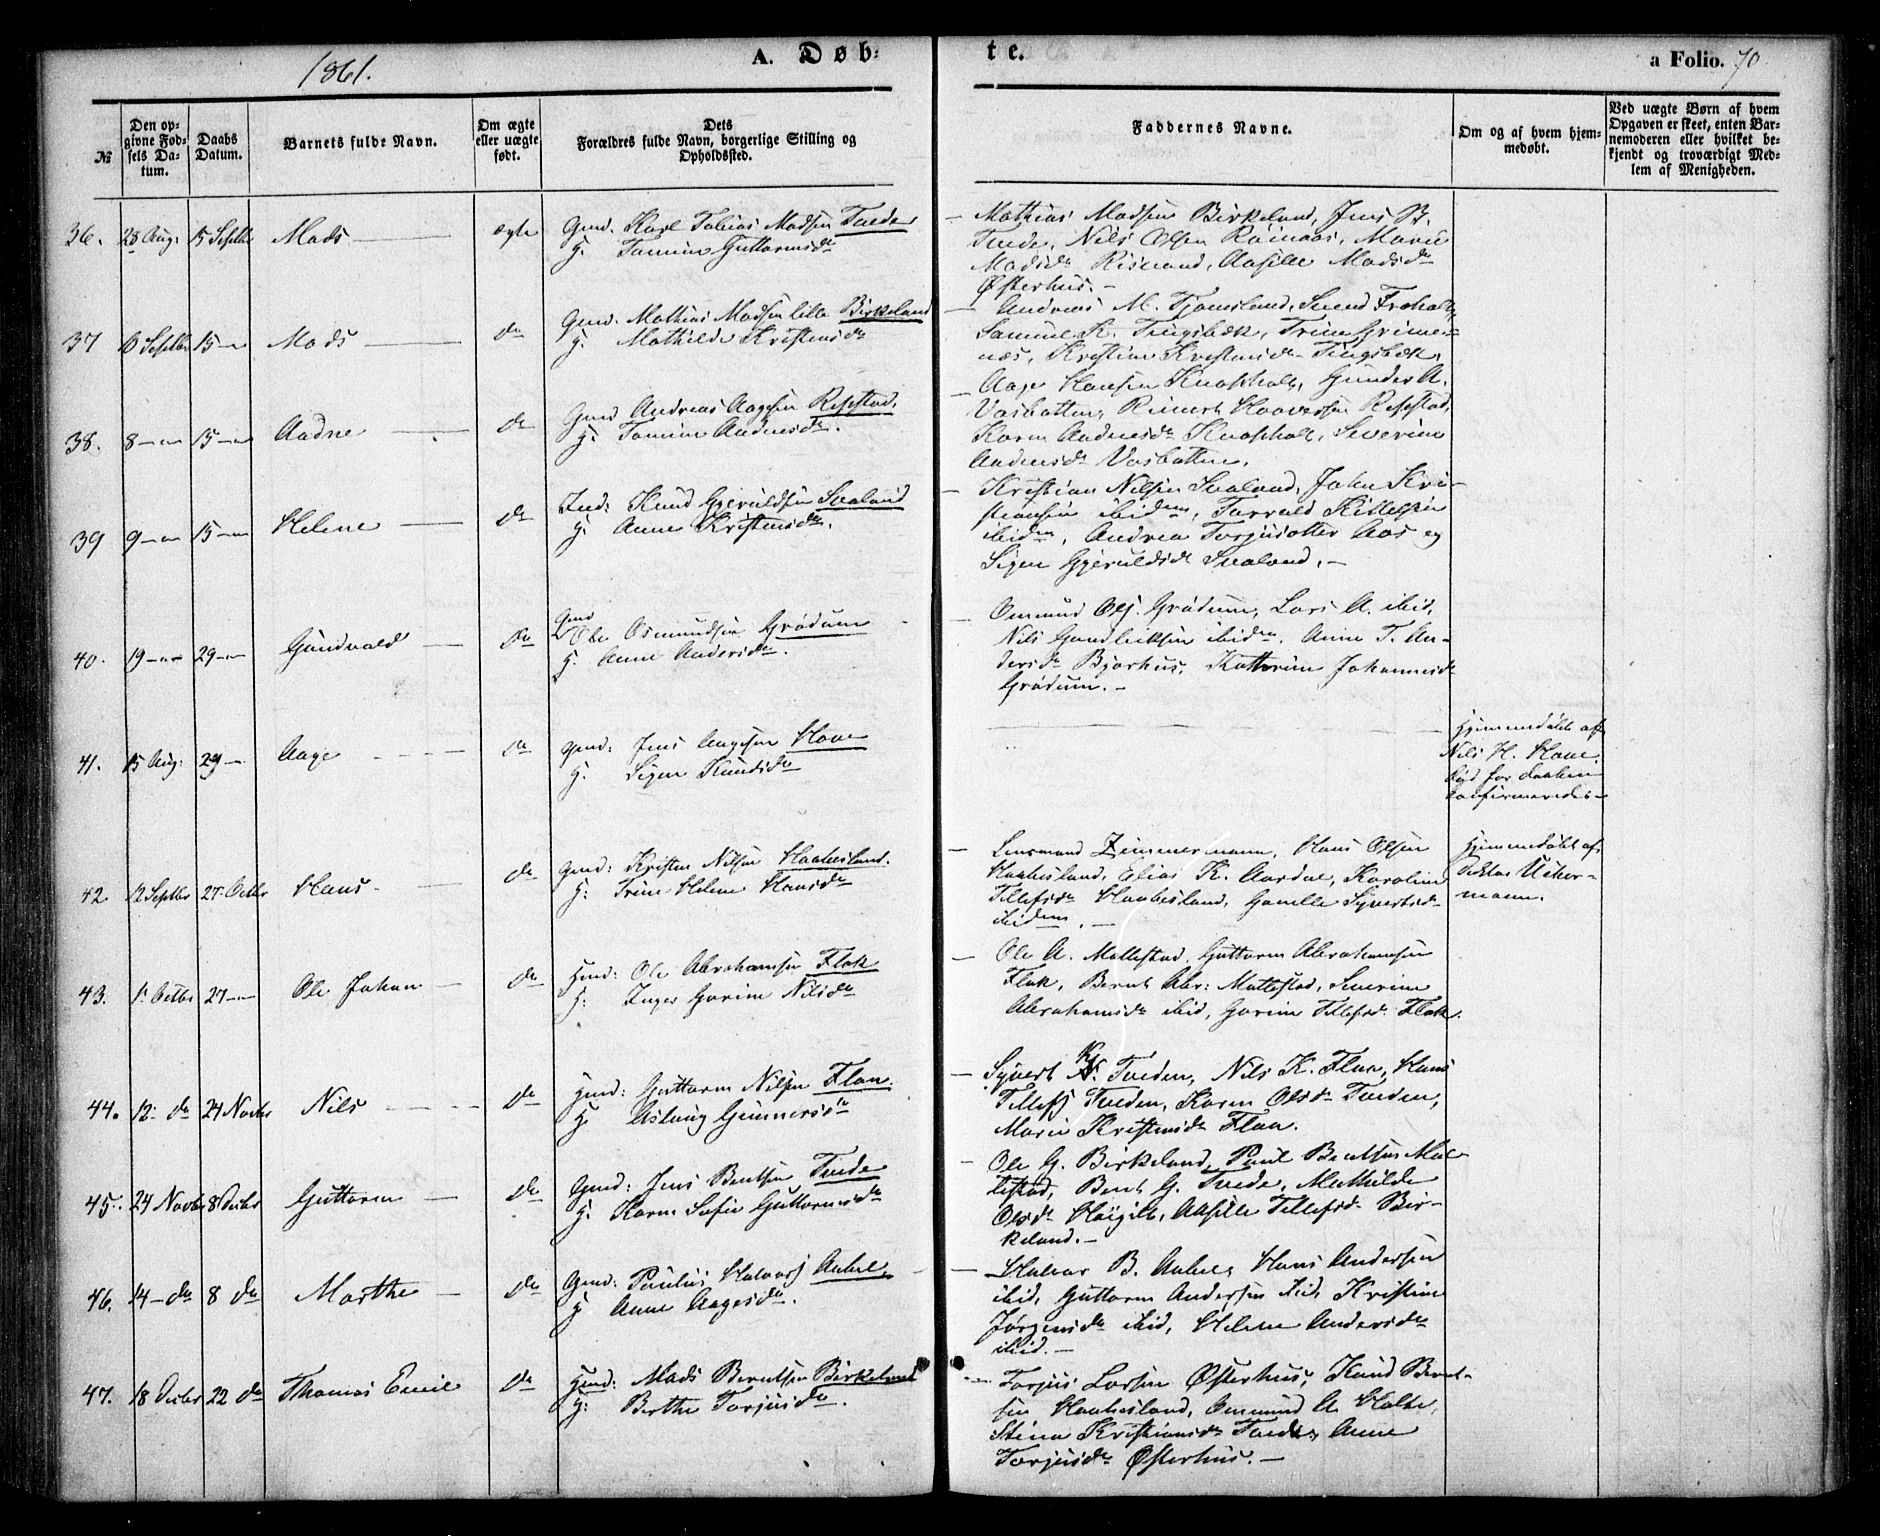 1861.
A. Døb-
te.
a Folio. 70
№
Den op-
givne Fød-
sels Da-
tum.
Daabs
Datum.
Barnets fulde Navn.
Om ægte
eller uægte
født.
Dets
Forældres fulde Navn, borgerlige Stilling og
Opholdssted.
Faddernes Navne.
Om og af hvem hjem-
medøbt.
Ved uægte Børn af hvem
Opgaven er skeet, enten Bar-
nemoderen eller hvilket be-
kjendt og troværdigt Med-
lem af Menigheden.
36. 28 Aug: 15 Septbr Mads ægte Gmd. Karl Tobias Madsen Tvede
H. Tomine Guttormsdr
Mathias Madsen Birkeland, Jens B.
Tvede, Nils Olsen Røinaas, Marie
Madsdr Risland, Aasille Madsdr
Østerhus.-
37 10 Septbr 15 - Mads do Gmd. Mathias Madsen lille Birkeland
H. Mathilde Kristensdr
Andreas M. Tjomsland, Svend Froholt,
Samuel K. Tingsbæk, Trine Grime-
næs, Kristine Kristensdr Tingsbæk.
38. 8 - 15 - Aadne do Gmd Andreas Aagesen Repstad.
H. Tomine Aadnesdr.
Aage Hansen Knapholt, Gunder A.
Vasbotten, Reinert Haaversen Repstad,
Karen Aadnesdr Knapholt, Severine
Aadnesdr Vasbotten.
39 9 - 15 - Helene do Ind: Knud Gjeruldsen Svaland
H. Anne Kristensdr
Kristian Nilsen Svaland, John Kri-
stiansen ibidem, Torvald Kittelsen
ibidem, Andrea Torjusdotter Aas og
Sigen Gjeruldsdr Svaland.-
40. 19 - 29 - Gundvald do Gmd
Ole Osmundsen Grødum
H. Anne Andersdr.
Omund Olsj. Grødum, Lars A. ibid,
Nils Gundleiksen ibidem, Anne T. An-
dersdr Bjørhus, Kattrine Johannesdr
Grødum.-
41. 15 Aug: 29 - Aage do Gmd: Jens Aagesen Hove
H. Sigen Knudsdr
Hjemmedøbt af
Nils H. Hove.
Død før Daaben
konfirmeredes-
42 12 Septbr 27 Octbr Hans do Gmd: Kristen Nilsen Haabesland.
H: Trine Helene Hansdr
Lensmand Zimmermann, Hans Olsen
Haabesland, Elias K. Aardal, Karoline
Tellefsdr Haabesland, Gunille Syvertsdr
ibidem.-
Hjemmedøbt af
Doktor Ucher-
mann.
43. 1 Octbr 27 - Ole Johan do Gmd: Ole Abrahamsen Flak
H. Inger Gurine Nilsdr
Ole A. Mollestad, Guttorm Abrahamsen
Flak, Bernt Abr: Mollestad, Severine
Abrahamsdr ibid, Gurine Tellefsdr Flak.
44. 12 do 24 Novbr Nils do Gmd: Guttorm Nilsen Flaa.
H Aslaug Gunnersdr
Syvert N. Tveden, Nils K. Flaa, Hans
Tellefsj Tveden, Karen Olsdr Tveden,
Marie Kristensdr Flaa.
45. 24 Novbr 8 Decbr Guttorm do Gmd: Jens Bentsen Tvede
H. Karen Sofie Guttormsdr
Ole G. Birkeland, Paul Bentsen Mol-
lestad, Bent G. Tvede, Mathilde
Olsdr Høigilt, Aasille Tellefsdr Bir-
keland.-
46. 14 - do 8 do Marthe do Gmd: Paulus Halvorsj Aabel.
H Anne Aagesdr.
Halvor B. Aabel, Hans Andersen
ibid, Guttorm Andersen ibid, Kristine
Jørgensdr ibid, Helene Andersdr
ibid.-
47. 18 Decbr 22 do Thomas Emil do Gmd: Mads Berentsen Birkeland
H: Berthe Torjusdr.
Torjus Larsen Østerhus, Knud Bernt-
sen Haabesland, Ommund A. Holte,
Stina Kristiansdr Tvede, Anne
Torjusdr Østerhus.-